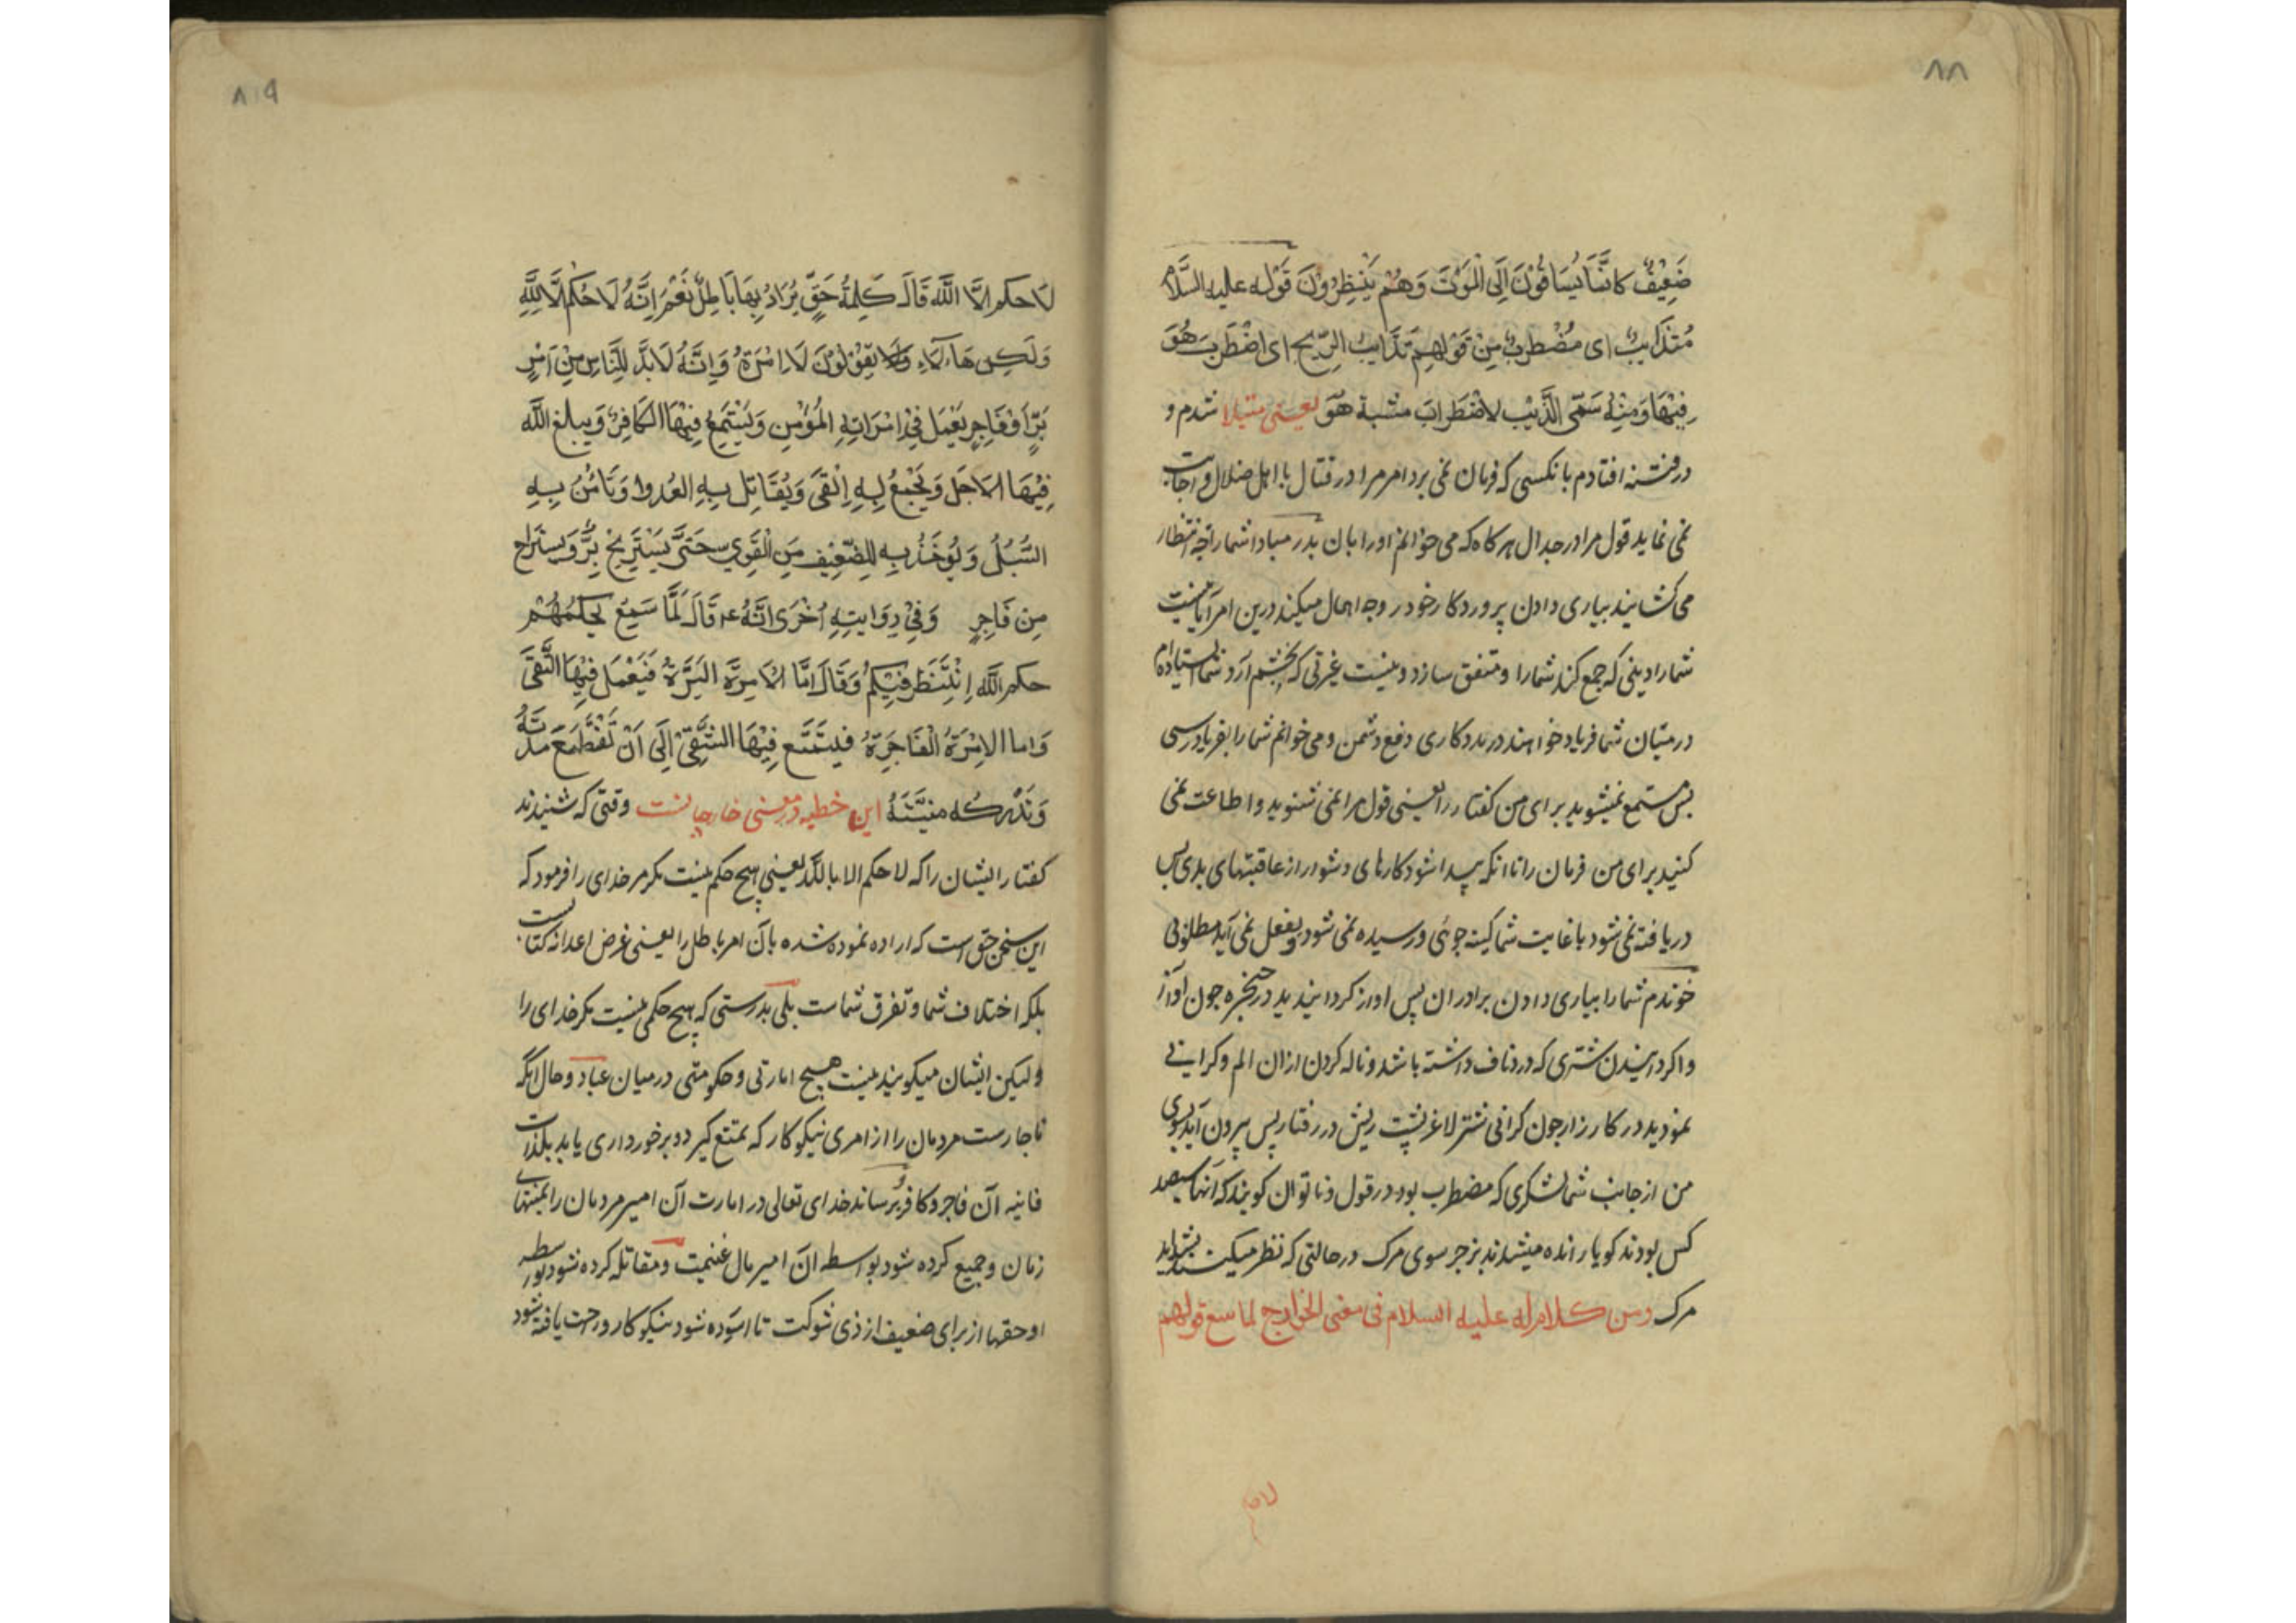 ٨٨
ضَعِيْفٌ كَانَّمَا يُسَاقُوْنَ اِلَى الْمَوْتَ وَهُمْ يَنْظِرُوْنَ قَوْله عليه السَّلام
مُتذَايِبٌ اى مُضْطرِبٌ مِنْ قَوْلِهِمْ تَذَايبُ الرِّيح اى اضْطَربَ هُوَ
فِيْهَا وَمِنْهُ سَمّى الذَّيْب لاضْطَراب مشبة هُوَ يعنى مبتلا شدم و
در فتنه افتادم بانكسى كه فرمان نمى برد امر مرا در قتال با اهل ضلال و اجابت
نمى نمايد قول مرا در جدال هر كاه كه مى خوانم او را بان بدر مباد اشما را چه انتظار
مى كشانيد بيارى دادن پروردكار خود در وجه اهمال ميكنيد درين امر آيا نيست
شما را دينى كه جمع كند شما را و متفق سازد و نيست غيرتى كه بخشم آرد شما ايستاده ام
در ميان شما فرياد خواهنده در مددكارى دفع دشمن و مى خوانم شما را بفريادرسى
پس مستمع نميشويد براى من كفتار را يعنى قول مرا نمى شنويد و اطاعت نمى
كنيد براى من فرمان را تا انكه پيدا شود كارهاى دشوار از عاقبتهاى بدى پس
دريافته نمى شود با غايت شما كينه جوئى و رسيده نمى شود و بفعل نمى آيد مطلوبى
خوندم شما را بيارى دادن برادران پس اواز كردانيديد در حنجره جون آواز
واكردانيدن شترى كه درد ناف داشته باشد و ناله كردن ازان الم و كرانى
نموديد در كارزار جون كرانى شتر لاغر پشت ريش در رفتار پس بيرون آيد بسوى
من از جانب شما لشكرى كه مضطرب بود در قول و ناتوان كويند كه آنها سيصد
كس بودند كويا رانده ميشدند بزجر سوى مرك در حالتى كه نظر ميكنند بشدايد
مرك ومن كلام له عليه السلام فى معنى الخوارج لما سمع قولهم
٨٩
لَا حكم الَّا اللَّه قَالَ كَلِمةُ حَقٍّ يُرَادُ بِهَا بَاطِلٌ نَعْمَر اِنَّهُ لَا حُكْم اِلَّا لِلَّهِ
وَلَكِن هَاءُلَاءِ يَقُوْلُوْنَ لَا اِمْرَةَ وَاِنَّهُ لَابُدَّ لِلنَّاسِ مِنْ اَمْيرٍ
بَرٍّ اَوْ فَاجِرٍ يَعْمَل فِيْ اِمْرَاتِهِ المُؤمِن وَيَسْتَمِعُ فِيْهَا الكَافِرُ وَيبلغ اللَّه
فِيْهَا الاَجَل وَيَجْمَعُ بِهِ الْفَىَ وَيُقَاتِل بِهِ العُدوا وَتَأمَنُ بِهِ
السُّبُلُ وَيُوخَذُ بِهِ لِلضّعِيْف مِنَ الْقَوِي حَتَّى يَسْتَرِيْح بَرٌّ وَيستراح
مِن فَاجِرٍ وَفِيْ رِوَايتِهِ اُخْرَى اَنَّهُ ع قَالَ لَمَّا سَمِعَ تحكِيمُهُمْ
حكم اللَّه اِنْتَظرُ فِيْكُمْ وَقَالَ اَمَّا الاِمرَة البَرَّةُ فَيَعْمَل فِيْهَا التَّقىَ
وَاما الاِمْرَةُ الْفَاجِرَةُ فيتمَتَّع فِيْهَا الشَّقِيّ اِلَى اَنْ تَنْقَطِعَ مُدَّتُهُ
وَتُدْرِكُه مَنِيَّتَهُ اين خطبه در معنى خارجيانست وقتى كه شنيدند
كفتار ايشان را كه لا حكم الا بالله يعنى هيچ حكم نيست مكر مر خداى را فرمود كه
اين سخن حق است كه اراده نموده شده بآن امر باطل را يعنى غرض اعدا نه كتابست
بلكه اختلاف شما و تفرق شماست بلى بدرستى كه هيچ حكمى نيست مكر خداى را
وليكن ايشان ميكويند نيست هيچ امارتى و حكومتى در ميان عباد و حال آنكه
ناچارست مردمان را از اميرى نيكوكار كه تمتع كيرد و برخوردارى يابد بلذات
فانيه آن فاجر و كافر و برساند خداى تعالى در امارت آن امير مردمان را بمنتهاى
زمان و جميع كرده شود بواسطه ان امير مال غنيمت و مقاتله كرده شود بواسطه
او حقها از براى ضعيف از ذى شوكت تا اسوده شود نيكوكار و راحت يافته شود